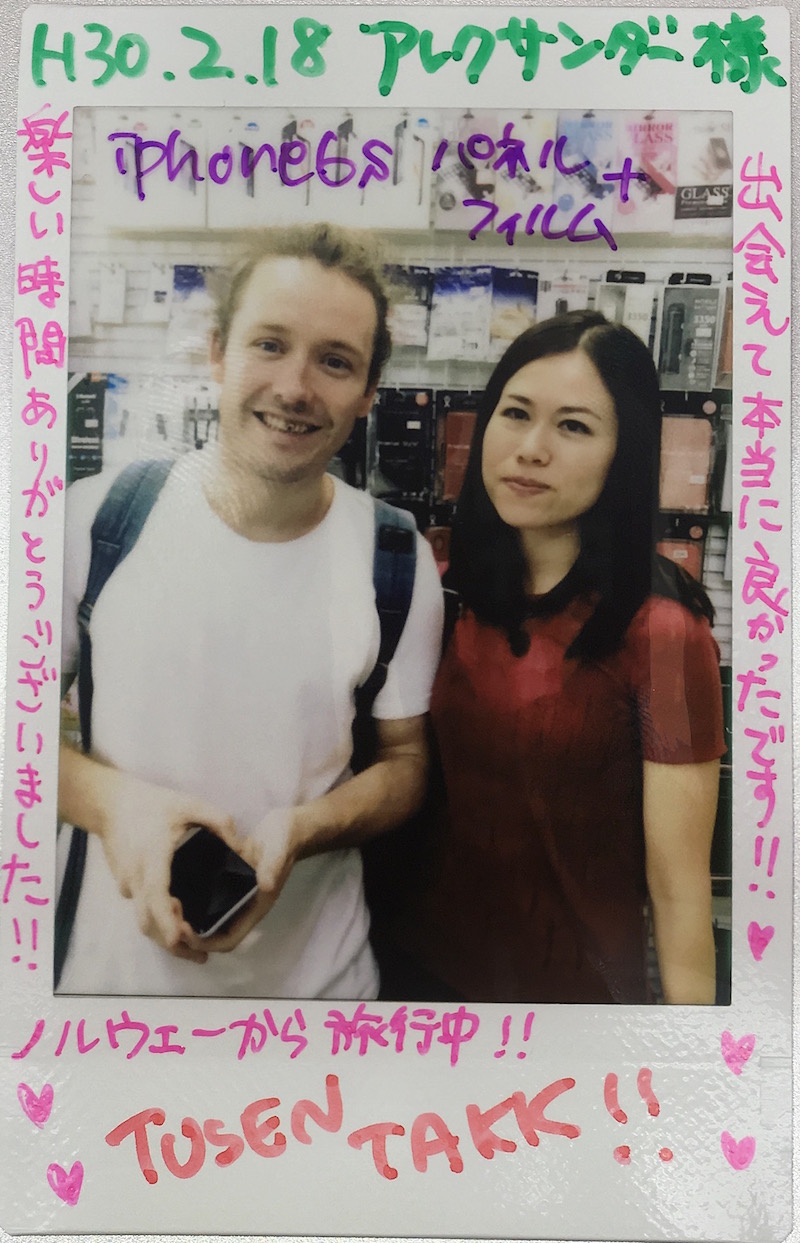 H30.2.18 アレクサンダー様
iphone6s パネル+
フィルム
出会えて本当に良かったです!!
楽しい時間ありがとうございました!!
ノルウェーから旅行中!!
TUSEN TAKK!!
GLASS